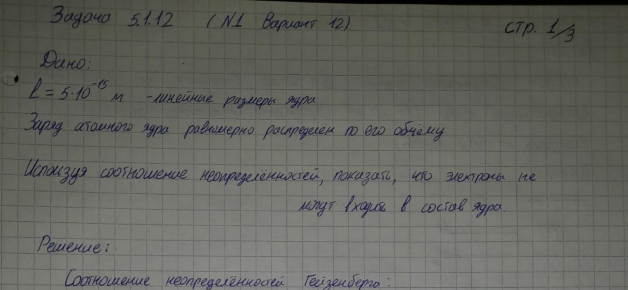 Задача 5.1.12 (N1 Вариант 12). стр. 1/3
Дано:
L = 5·10⁻¹⁵ м - линейные размеры ядра
Заряд атомного ядра равномерно распределен по его объёму
Используя соотношение неопределённостей, показать, что электроны не
могут входить в состав ядра.
Решение:
Соотношение неопределённостей Гейзенберга: